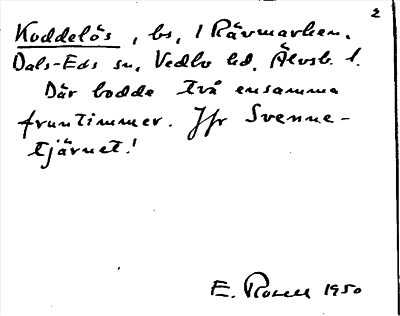 2
Koddelös, bs, i Rävmarken.
Dals-Eds sn, Vedbo hd. Älvsb. l.
Där bodde två ensamma
fruntimmer. Jfr Svenne-
tjärnet!
E. Rosell 1950